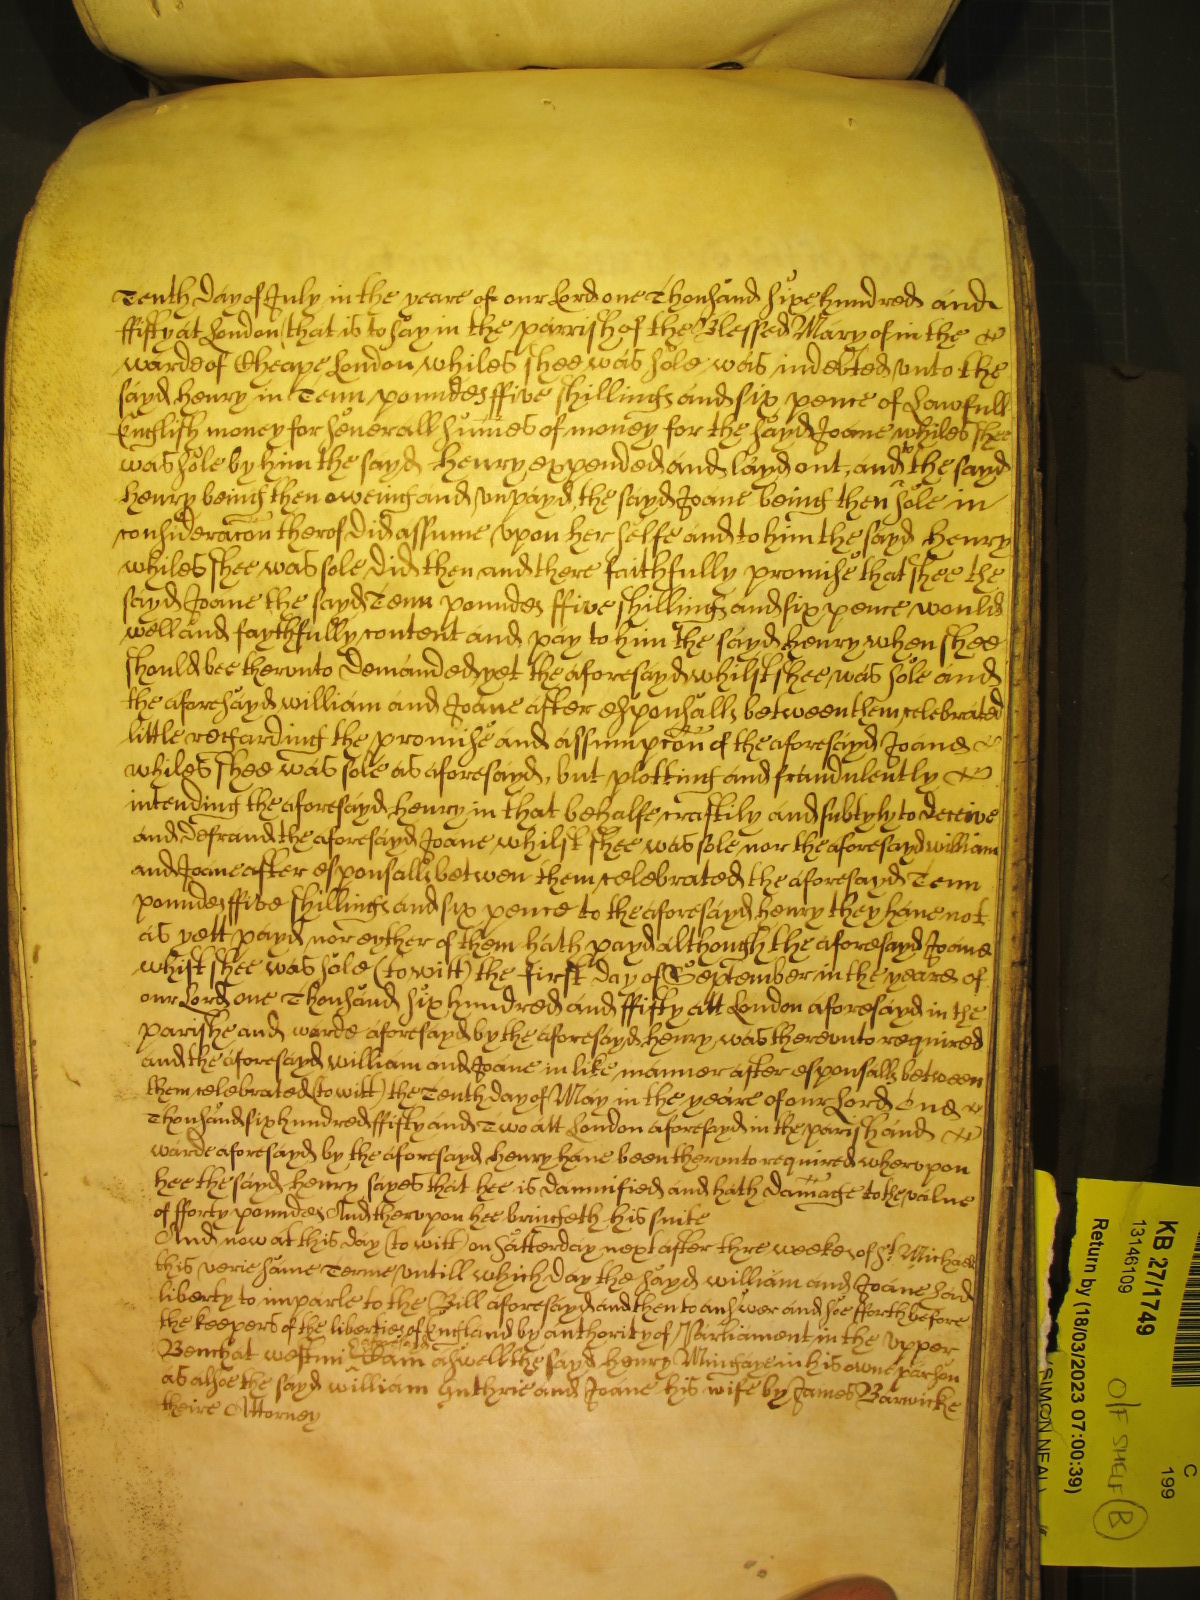 Tenth day of July in the yeare of our Lord one Thousand sixe hundred and
ffifty at London (that is to say in the parrish of the Blessed Mary of in the
warde of Cheape London whiles shee was sole was indebted unto the
sayd Henry in Tenn poundes ffive shillings and six pence of Lawfull
English money for severall summes of money for the sayd Joane whiles shee
was sole by him the sayd Henry expended and layd out, and to the sayd
Henry being then oweing and unpayd, the sayd Joane being then sole in
consideracon therof did assume upon her selfe and to him the sayd Henry
whiles shee was sole did then and there faithfully promise that shee the
sayd Joane the sayd Tenn poundes ffive shillings and six pence would
well and faythfully content and pay to him the sayd Henry when shee
should bee therunto demanded, yet the aforesayd whilst shee was sole and
the aforesayd William and Joane after esponsalls between them celebrated
little regarding the promise and assumpcon of the aforesayd Joane
whiles shee was sole as aforesayd, but plotting and fraudulently
intending the aforesayd Henry in that behalfe craftily and subtyly to deceive
and defraud the aforesayd Joane whilst shee was sole nor the aforesayd William
and Joane after esponsalls betwen them celebrated the aforesayd Tenn
poundes ffive shillings and six pence to the aforesayd Henry they have not
as yett payd nor eyther of them hath payd although the aforesayd Joane
whist shee was sole (to witt) the first day of September in the yeare of
our Lord one Thousand six hundred and ffifty att London aforesayd in the
parishe and warde aforesayd by the aforesayd Henry was therunto required
and the aforesayd William and Joane in like manner after esponsalls between
them celebrated (to witt) the Tenth day of May in the yeare of our Lord One
Thousand six hundred ffifty and Two att London aforesayd in the parish and
warde aforesayd by the aforesayd Henry have been therunto required wherupon
hee the sayd Henry sayes that hee is damnified and hath damage to the value
of fforty poundes And therupon hee bringeth his suite
And now at this day (to witt) on Satterday next after thre weekes of St. Michaell
this verie same Terme untill which day the sayd William and Joane had
liberty to imparle to the Bill aforesayd and then to answer and soe fforth before
the keepers of the liberties of England by authority of Parliament in the Upper
Bench at Westmi Cam aswell the sayd Henry Mingaye in his owne parson
as alsoe the sayd William Guthrie and Joane his wife by James Barwicke
theire Attorney
KB 27/1749
13146109
Return by (18/03/2023 07:00:39)
(SIMON NEAL)
C
199
O/F SHELF B